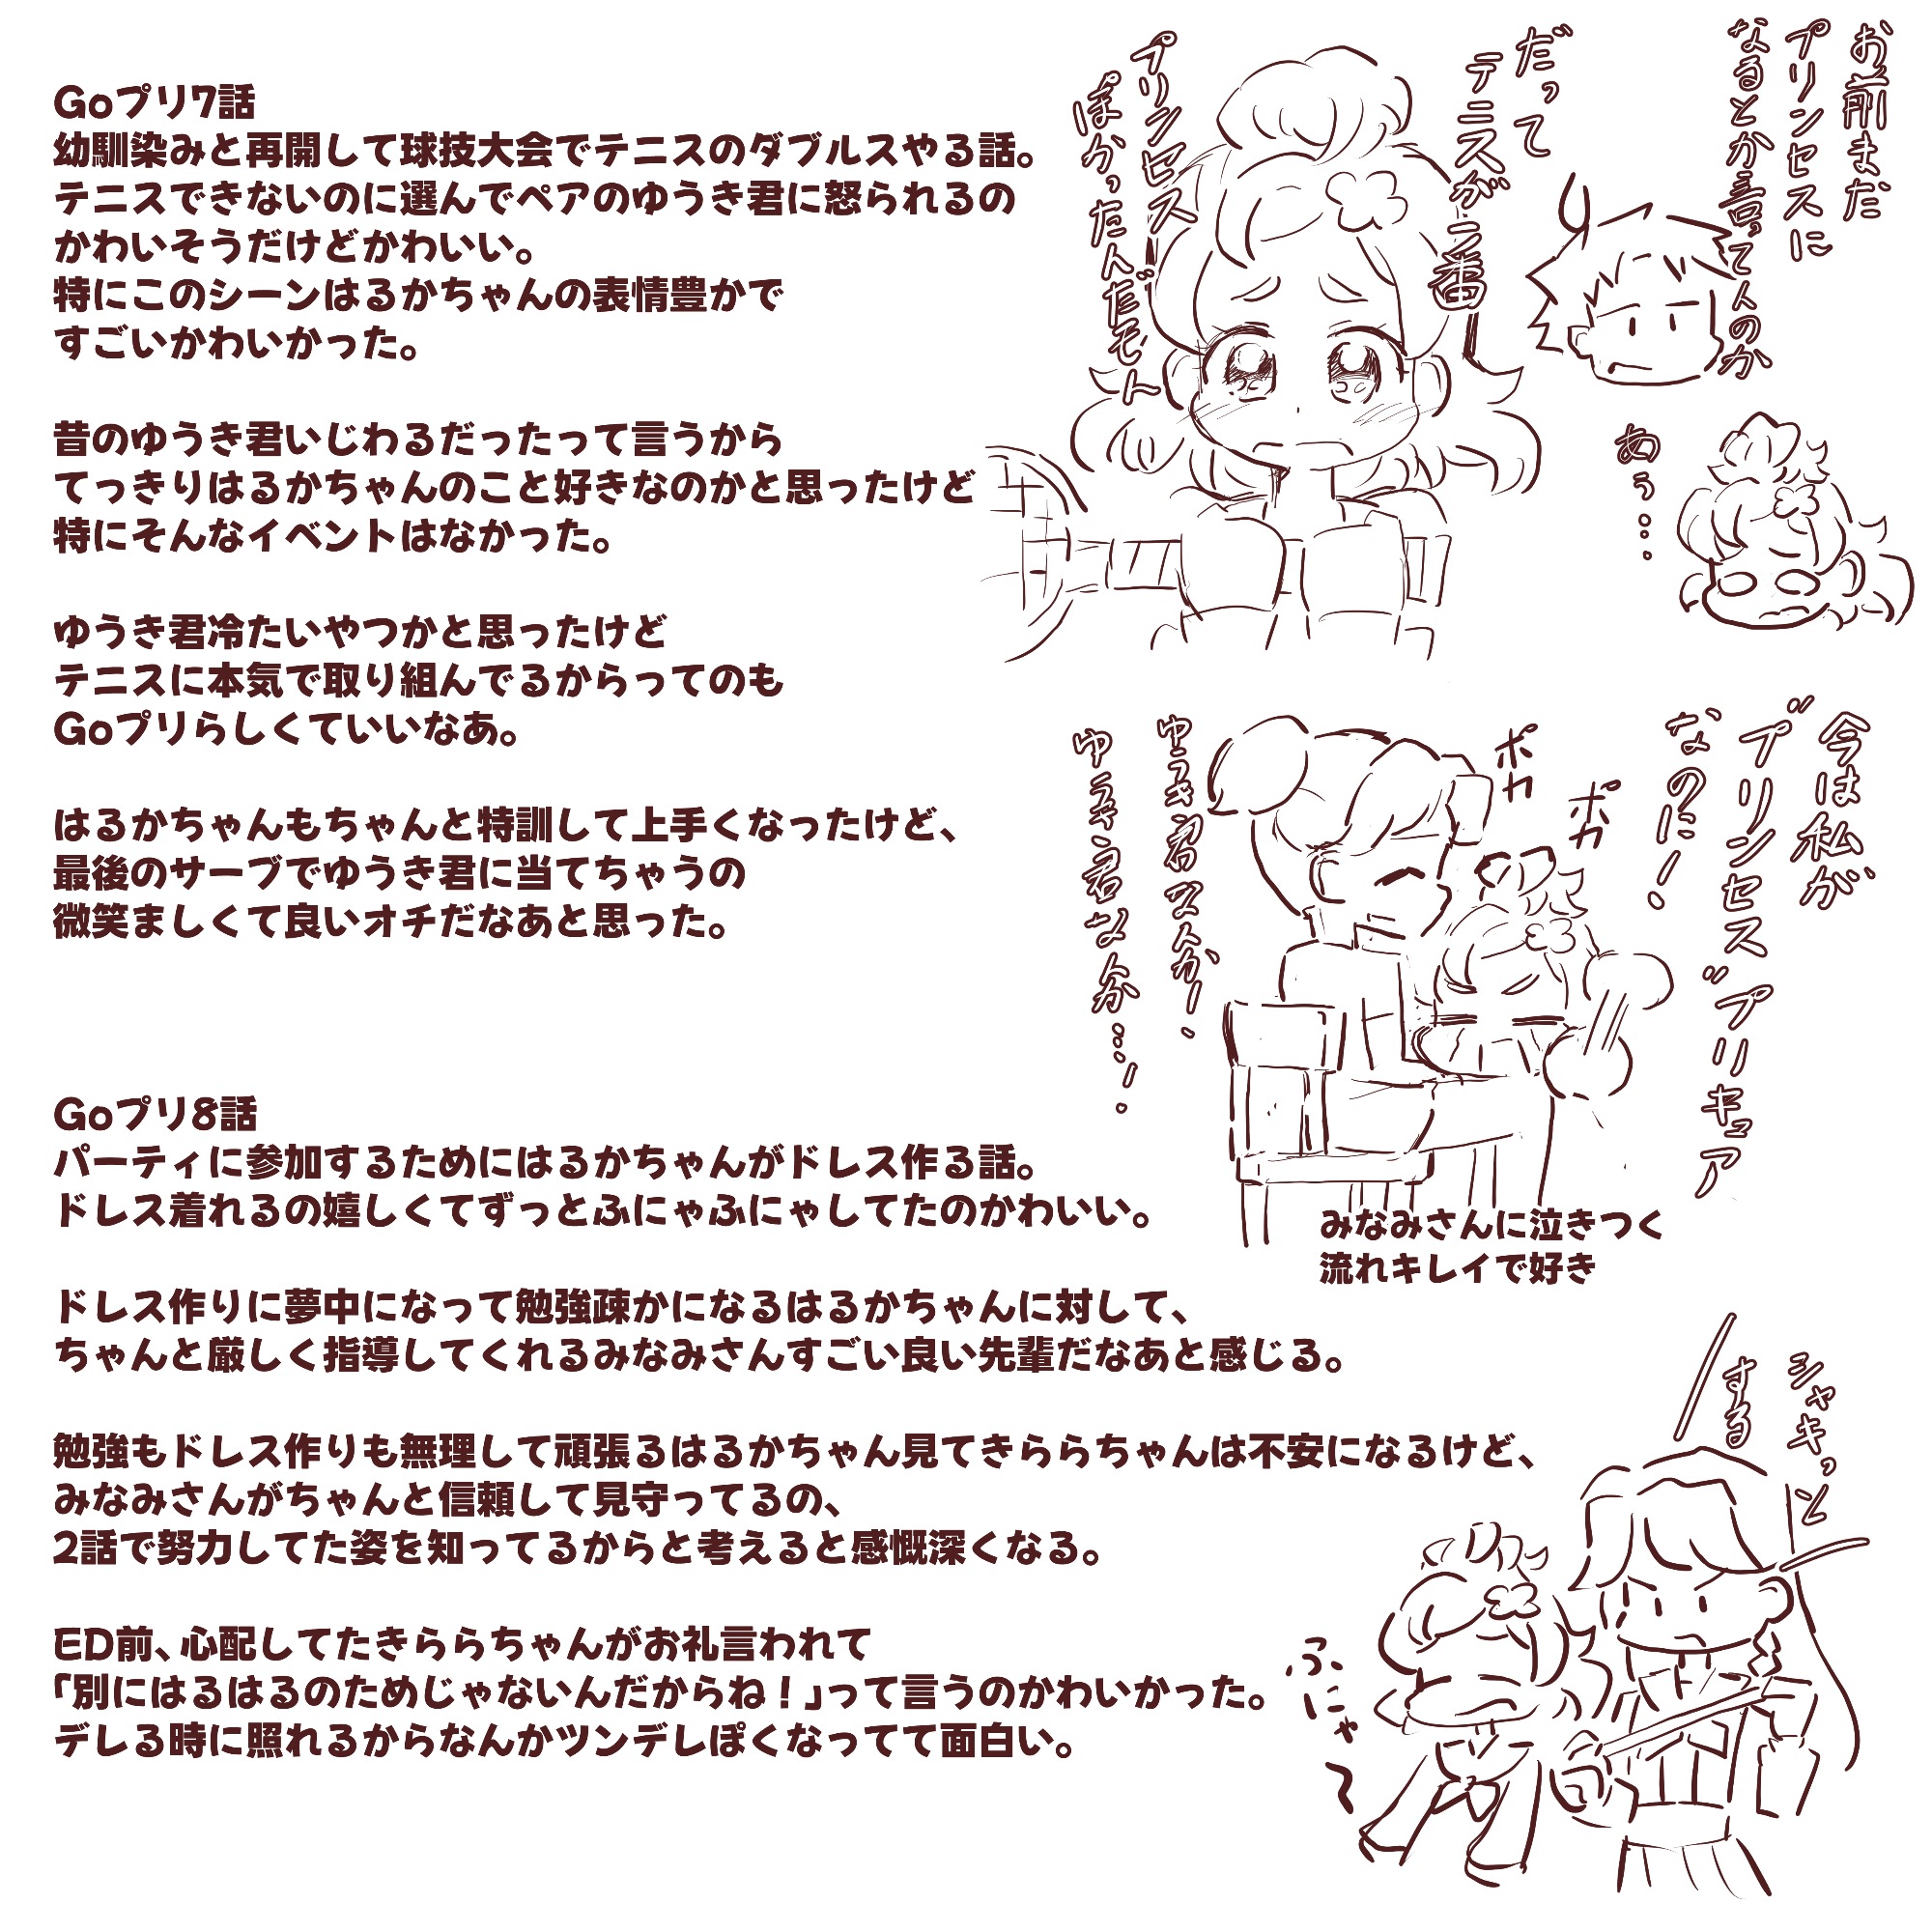 Goプリ7話
幼馴染みと再開して球技大会でテニスのダブルスやる話。
テニスできないのに選んでペアのゆうき君に怒られるの
かわいそうだけどかわいい。
特にこのシーンはるかちゃんの表情豊かで
すごいかわいかった。
昔のゆうき君いじわるだったって言うから
てっきりはるかちゃんのこと好きなのかと思ったけど
特にそんなイベントはなかった。
ゆうき君冷たいやつかと思ったけど
テニスに本気で取り組んでるからってのも
Goプリらしくていいなあ。
はるかちゃんもちゃんと特訓して上手くなったけど、
最後のサーブでゆうき君に当てちゃうの
微笑ましくて良いオチだなあと思った。
お前まだ
プリンセスに
なるとか言ってんのか
だって
テニスが一番
プリンセス
ぽかったんだモン
あぅ…
今は私が
"プリンセス"プリキュア
なのに!
ポカ
ポカ
ゆうき君なんか、
ゆうき君なんか…!
みなみさんに泣きつく
流れキレイで好き
Goプリ8話
パーティに参加するためにはるかちゃんがドレス作る話。
ドレス着れるの嬉しくてずっとふにゃふにゃしてたのかわいい。
ドレス作りに夢中になって勉強疎かになるはるかちゃんに対して、
ちゃんと厳しく指導してくれるみなみさんすごい良い先輩だなあと感じる。
勉強もドレス作りも無理して頑張るはるかちゃん見てきららちゃんは不安になるけど、
みなみさんがちゃんと信頼して見守ってるの、
2話で努力してた姿を知ってるからと考えると感慨深くなる。
ED前、心配してたきららちゃんがお礼言われて
「別にはるはるのためじゃないんだからね！」って言うのかわいかった。
デレる時に照れるからなんかツンデレぽくなってて面白い。
シャキッと
する
ふにゃ〜